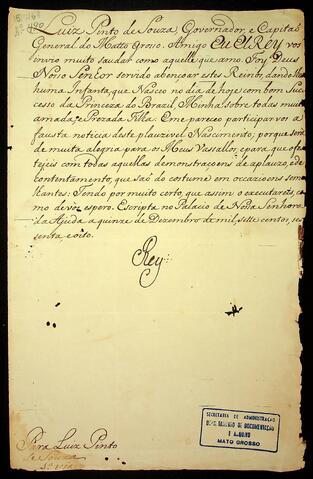 Luiz Pinto de Souza, Governador, e Capitaõ
General do Matto Groso. Amigo EU ELREY vos
envio muito saudar como aquelle que amo. Foy Deus
Noso Senhor servido abençoar estes Reinos, dando lhe
huma Infanta, que Nasceo no dia de hoje com bom Suc-
cesso da Princeza do Brazil, Minha sobre todas muito
amada, e Prezada Filha. E me pareceo participar vos a
fausta noticia deste plauzivel Nascimento, porque será
de muita alegria para os Meus Vassallos, e para que o fes-
tejeis com todas aquellas demonstraçoens de aplauzo, e de
contentamento, que saõ do costume em occazioens seme-
lhantes: Tendo por muito certo, que assim o executareis, co-
mo de vos espero. Escripta no Palacio de Nosa Senhora
da Ajuda a quinze de Dezembro de mil, sette centos, ses-
senta e oito.
Rey
Para Luiz Pinto
de Souza
SECRETARIA DE ADMINISTRAÇÃO
E ARQUIVO
MATO GROSSO